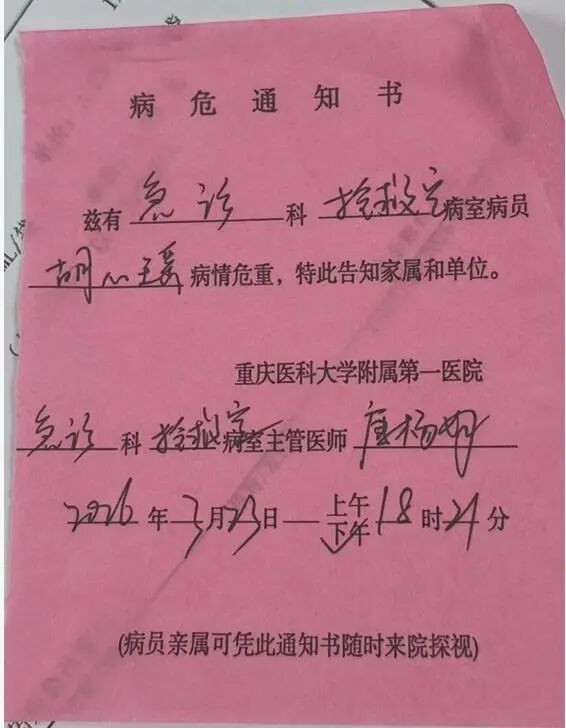 病危通知书
兹有 急诊 科 抢救室 病室病员
胡心瑗 病情危重，特此告知家属和单位。
重庆医科大学附属第一医院
急诊 科 抢救室 病室主管医师
2026 年 3 月 23 日 上午 18 时 21 分
下午
(病员亲属可凭此通知书随时来院探视)